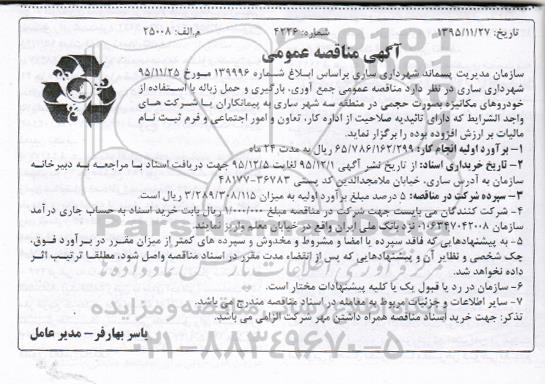 تاریخ: ۱۳۹۵/۱۱/۲۷ شماره: ۴۲۲۶ م.الف: ۲۵۰۰۸
آگهی مناقصه عمومی
سازمان مدیریت پسماند شهرداری ساری براساس ابلاغ شماره ۱۳۹۹۹۶ مورخ ۹۵/۱۱/۲۵
شهرداری ساری در نظر دارد مناقصه عمومی جمع آوری، بارگیری و حمل زباله با استفاده از
خودروهای مکانیزه بصورت حجمی در منطقه سه شهر ساری به پیمانکاران یا شرکت های
واجد الشرایط که دارای تائیدیه صلاحیت از اداره کار، تعاون و امور اجتماعی و فرم ثبت نام
مالیات بر ارزش افزوده بوده را برگزار نماید.
۱- برآورد اولیه انجام کار: ۶۵/۷۸۶/۱۶۲/۲۹۹ ریال به مدت ۲۴ ماه
۲- تاریخ خریداری اسناد: از تاریخ نشر آگهی ۹۵/۱۲/۱ لغایت ۹۵/۱۲/۵ جهت دریافت اسناد با مراجعه به دبیرخانه
سازمان به آدرس ساری، خیابان ملامجدالدین کد پستی ۳۶۷۸۳-۴۸۱۷۷
۳- سپرده شرکت در مناقصه: ۵ درصد مبلغ برآورد اولیه به میزان ۳/۲۸۹/۳۰۸/۱۱۵ ریال است.
۴- شرکت کنندگان می بایست جهت شرکت در مناقصه مبلغ ۱/۰۰۰/۰۰۰ ریال بابت خرید اسناد به حساب جاری درآمد
سازمان ۰۱۰۶۳۴۷۰۴۲۰۰۸ نزد بانک ملی ایران واقع در خیابان معلم واریز نمایند.
۵- به پیشنهادهایی که فاقد سپرده یا امضا و مشروط و مخدوش و سپرده های کمتر از میزان مقرر در برآورد فوق،
چک شخصی و نظایر آن و پیشنهادهایی که پس از انقضاء مدت مقرر در اسناد مناقصه واصل شود، مطلقا ترتیب اثر
داده نخواهد شد.
۶- سازمان در رد یا قبول یک یا کلیه پیشنهادات مختار است.
۷- سایر اطلاعات و جزئیات مربوط به معامله در اسناد مناقصه مندرج می باشد.
تذکر: جهت خرید اسناد مناقصه همراه داشتن مهر شرکت الزامی می باشد.
یاسر بهارفر- مدیر عامل
۰۲۱-۸۸۳۴۹۶۷۰-۵